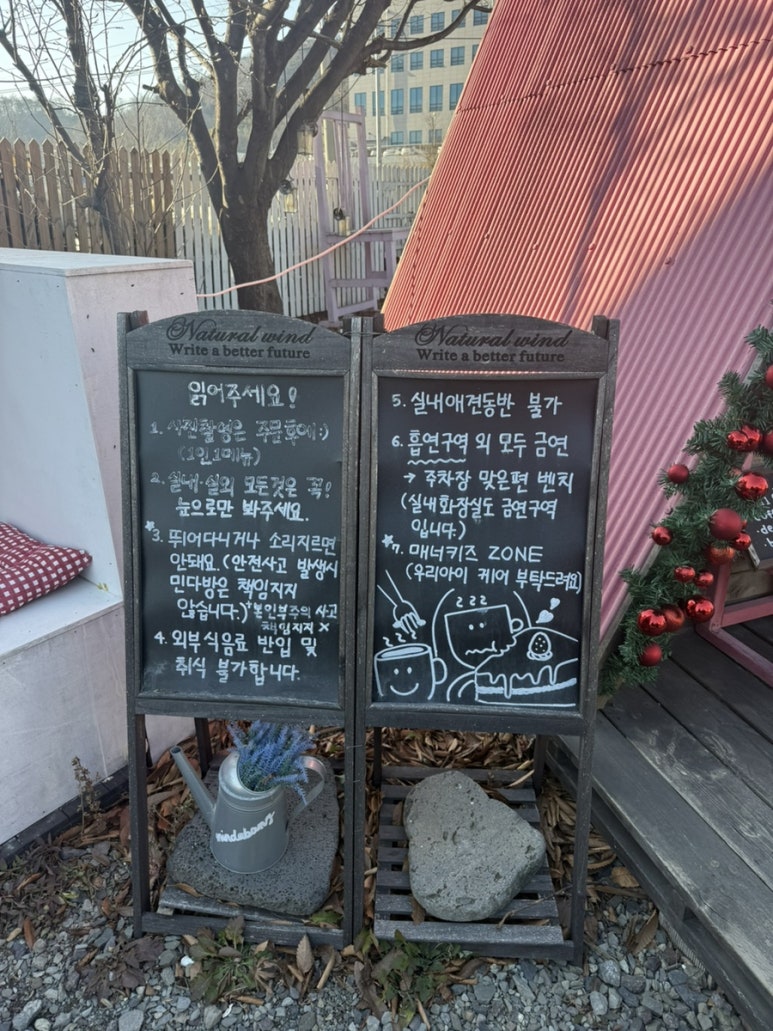 Natural wind
Write a better future
읽어주세요!
1. 사진촬영은 주문후에:)
(1인1메뉴)
2. 실내·실외 모든것은 꼭!
눈으로만 봐주세요.
*3. 뛰어다니거나 소리지르면
안돼요. (안전사고 발생시
민다방은 책임지지
않습니다.) *본인부주의 사고
책임지지 X
4. 외부식음료 반입 및
취식 불가합니다.
Natural wind
Write a better future
5. 실내애견동반 불가
6. 흡연구역 외 모두 금연
→ 주차장 맞은편 벤치
(실내화장실도 금연구역
입니다.)
*7. 매너키즈 ZONE
(우리아이 케어 부탁드려요)